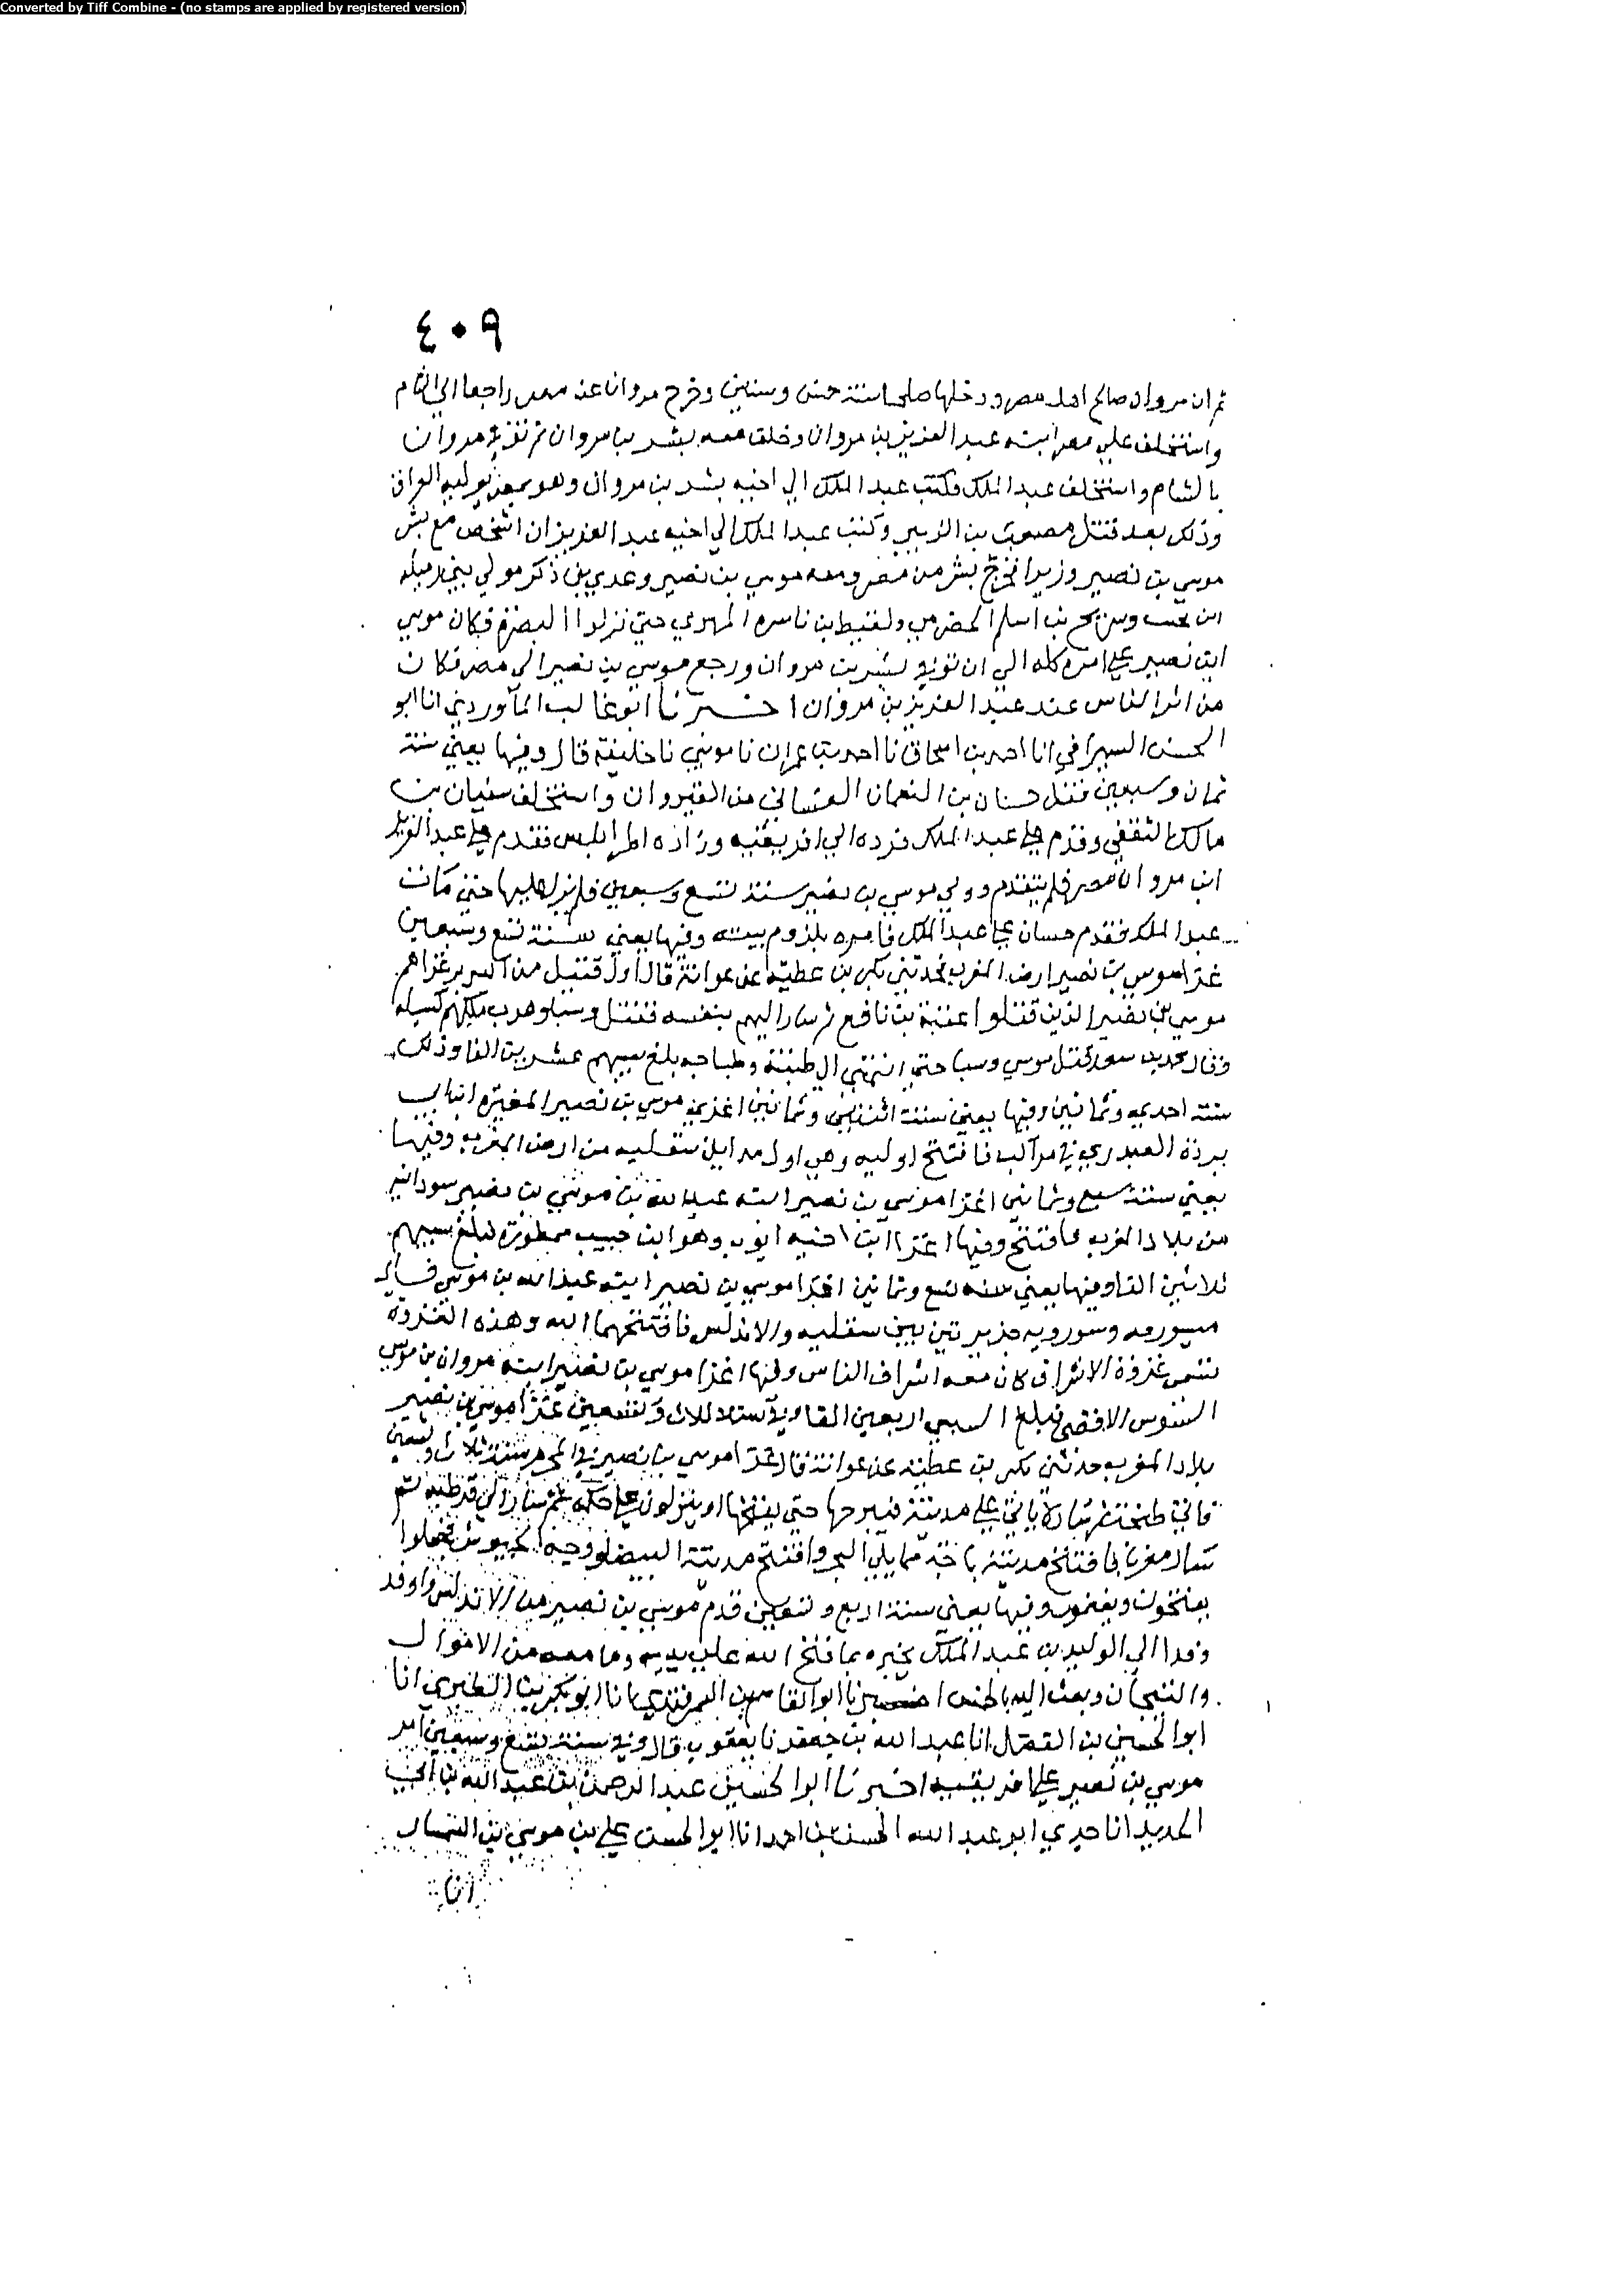 Converted by Tiff Combine - (no stamps are applied by registered version)
٤٠٩
ثم ان مروان صالح اهل مصر ودخلها صلحا سنة خمس وستين وخرج مروان عن مصر راجعا الي الشام
واستخلف علي مصر ابنه عبد العزيز بن مروان وخلف معه بشر بن مروان ثم توفي مروان
بالشام واستخلف عبد الملك فكتب عبد الملك الي اخيه بشر بن مروان وهو بمصر يوليه العراق
وذلك بعد قتل مصعب بن الزبير وكتب عبد الملك الي اخيه عبد العزيز ان اشخص مع بشر
موسي بن نصير وزيرا فخرج بشر من مصر ومعه موسي بن نصير وعدي بن ذكر مولي بني
اسلم الحضرمي ولقيط بن ناسره المهري حتي نزلوا البصرة فكان موسي
ابن نصير علي امره كله الي ان توفي بشر بن مروان ورجع موسي بن نصير الي مصر فكان
من اثر الناس عند عبد العزيز بن مروان اخبرنا ابو غالب الماوردي انا ابو
الحسن السيرافي انا احمد بن اسحاق نا احمد بن عمران نا موسي نا خليفة قال وفيها يعني سنة
ثمان وسبعين قتل حسان بن النعمان الغساني من القيروان واستخلف سفيان بن
مالك الثقفي وقدم علي عبد الملك فرده الي افريقيه وزاده اطرابلس فقدم علي عبد العزيز
ابن مروان مصر فلم يتقدم وولي موسي بن نصير سنة تسع وسبعين فلم يزل عليها حتي مات
عبد الملك فقدم حسان علي عبد الملك فامره بلزوم بيته وفيها يعني سنة تسع وسبعين
غزا موسي بن نصير ارض المغرب فحدثني بكر بن عطية عن عوانة قال اول قتيل من البربر غزاهم
موسي بن نصير الذين قتلوا عقبة بن نافع ثم سار اليهم بنفسه فقتل وسبا وهرب ملكهم كسيله
وقال محمد بن سعيد قتل موسي وسبا حتي انتهي الي طبنة بلغ سبيهم عشرين الفا وذلك
سنة احدي وثمانين وفيها يعني سنة اثنتين وثمانين اغزي موسي بن نصير المغيرة ابن ابي
بردة العبدري في مراكب فافتتح اوليه وهي اول مداين سقليه من ارض المغرب وفيها
يعني سنة سبع وثمانين اغزا موسي بن نصير ابنه عبد الله بن موسي بن نصير سردانيه
من بلاد المغرب فافتتح وفيها اغزا ابن اخيه ايوب وهو ابن حبيب ممطورة فبلغ سبيهم
ثلاثين الفا وفيها يعني سنه تسع وثمانين اغزا موسي بن نصير ابنه عبد الله بن موسي
ميورقه ومنورقه جزيرتين بين سقليه والاندلس فافتتحهما الله وهذه الغزوة
تسمي غزوة الاشراف كان معه اشراف الناس وفيها اغزا موسي بن نصير ابنه مروان بن موسي
السوس الاقصي فبلغ السبي اربعين الفا وفي سنة ثلاث وتسعين غزا موسي بن نصير
بلاد المغرب حدثني بكر بن عطيه عن عوانة قال غزا موسي بن نصير في المحرم سنة ثلاث وتسعين
فاتي طنجة ثم سار لا ياتي علي مدينة فيبرحها حتي يفتحها او ينزلون علي حكمه ثم سار الي قرطبه ثم
سار مغربا فافتتح مدينة باجة مما يلي البحر وافتتح مدينة البيضا ووجه الجيوش فجعلوا
يفتحون ويغنمون وفيها يعني سنة اربع وتسعين قدم موسي بن نصير من الاندلس واوفد
وفدا الي الوليد بن عبد الملك يخبره بما فتح الله علي يديه وما معه من الاموال
والتيجان وبعث اليه بالخمس اخبرنا ابو القاسم بن السمرقندي انا ابو بكر بن الطبري انا
ابو الحسين بن الفضل انا عبد الله بن جعفر نا يعقوب قال وفي سنة تسع وسبعين امر
موسي بن نصير علي افريقيه اخبرنا ابو الحسين عبد الرحمن بن عبد الله بن الحسن
الحديد انا جدي ابو عبد الله الحسن بن احمد انا ابو الحسن علي بن موسي بن السمسار
انا